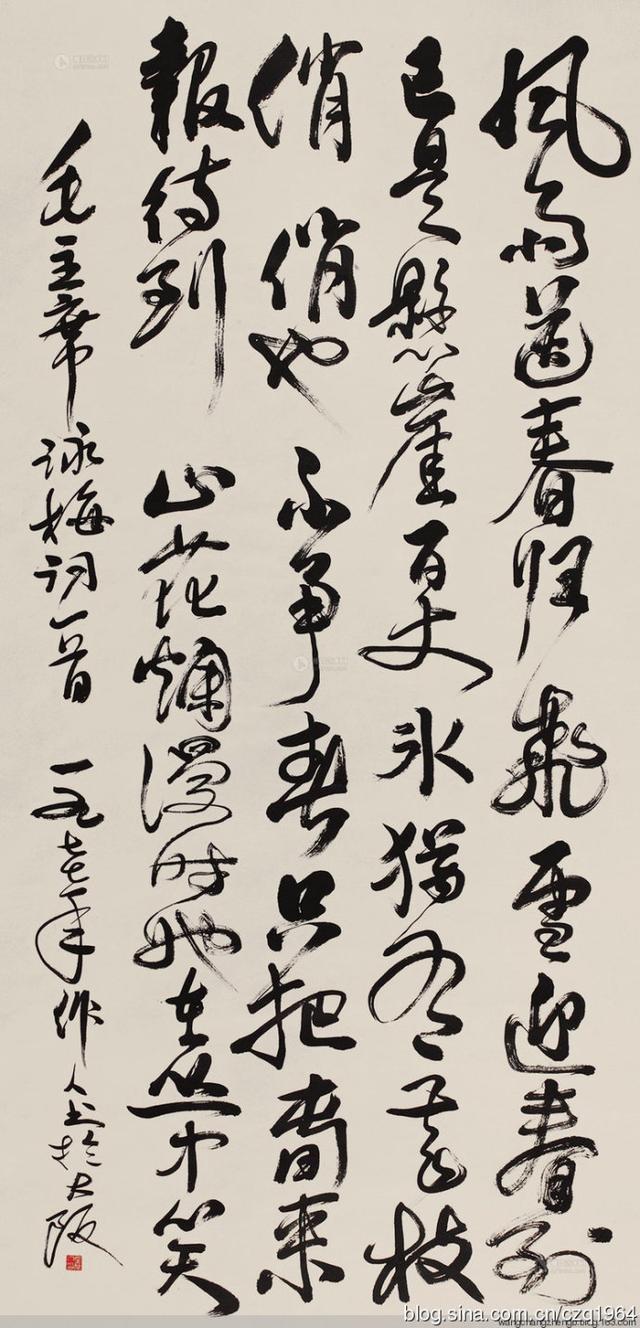 風雨送春归飛雪迎春到
已是懸崖百丈冰猶有花枝
俏 俏也不争春只把春来
報待到 山花爛漫时她在丛中笑
毛主席詠梅詞一首 一九七七年作人书於大阪
blog.sina.com.cn/czq1964